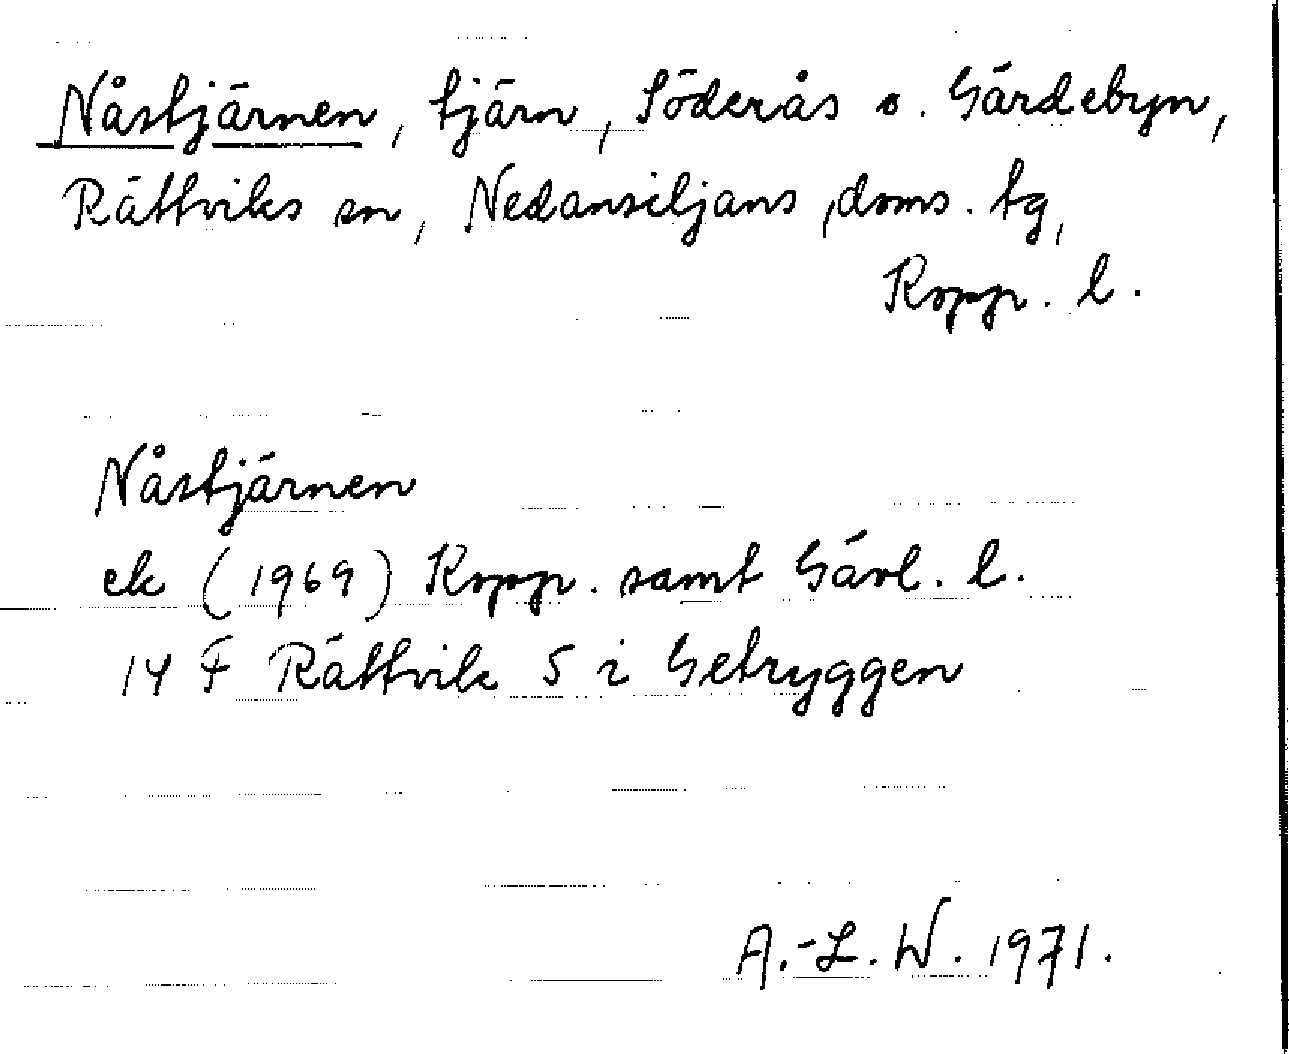 Nåstjärnen, tjärn, Söderås o. Gärdebyn,
Rättviks sn, Nedansiljans doms. tg,
Kopp. l.
Nåstjärnen
ek (1969) Kopp. samt Gävl. l.
14 F Rättvik 5 i Getryggen
A.-L. W. 1971.